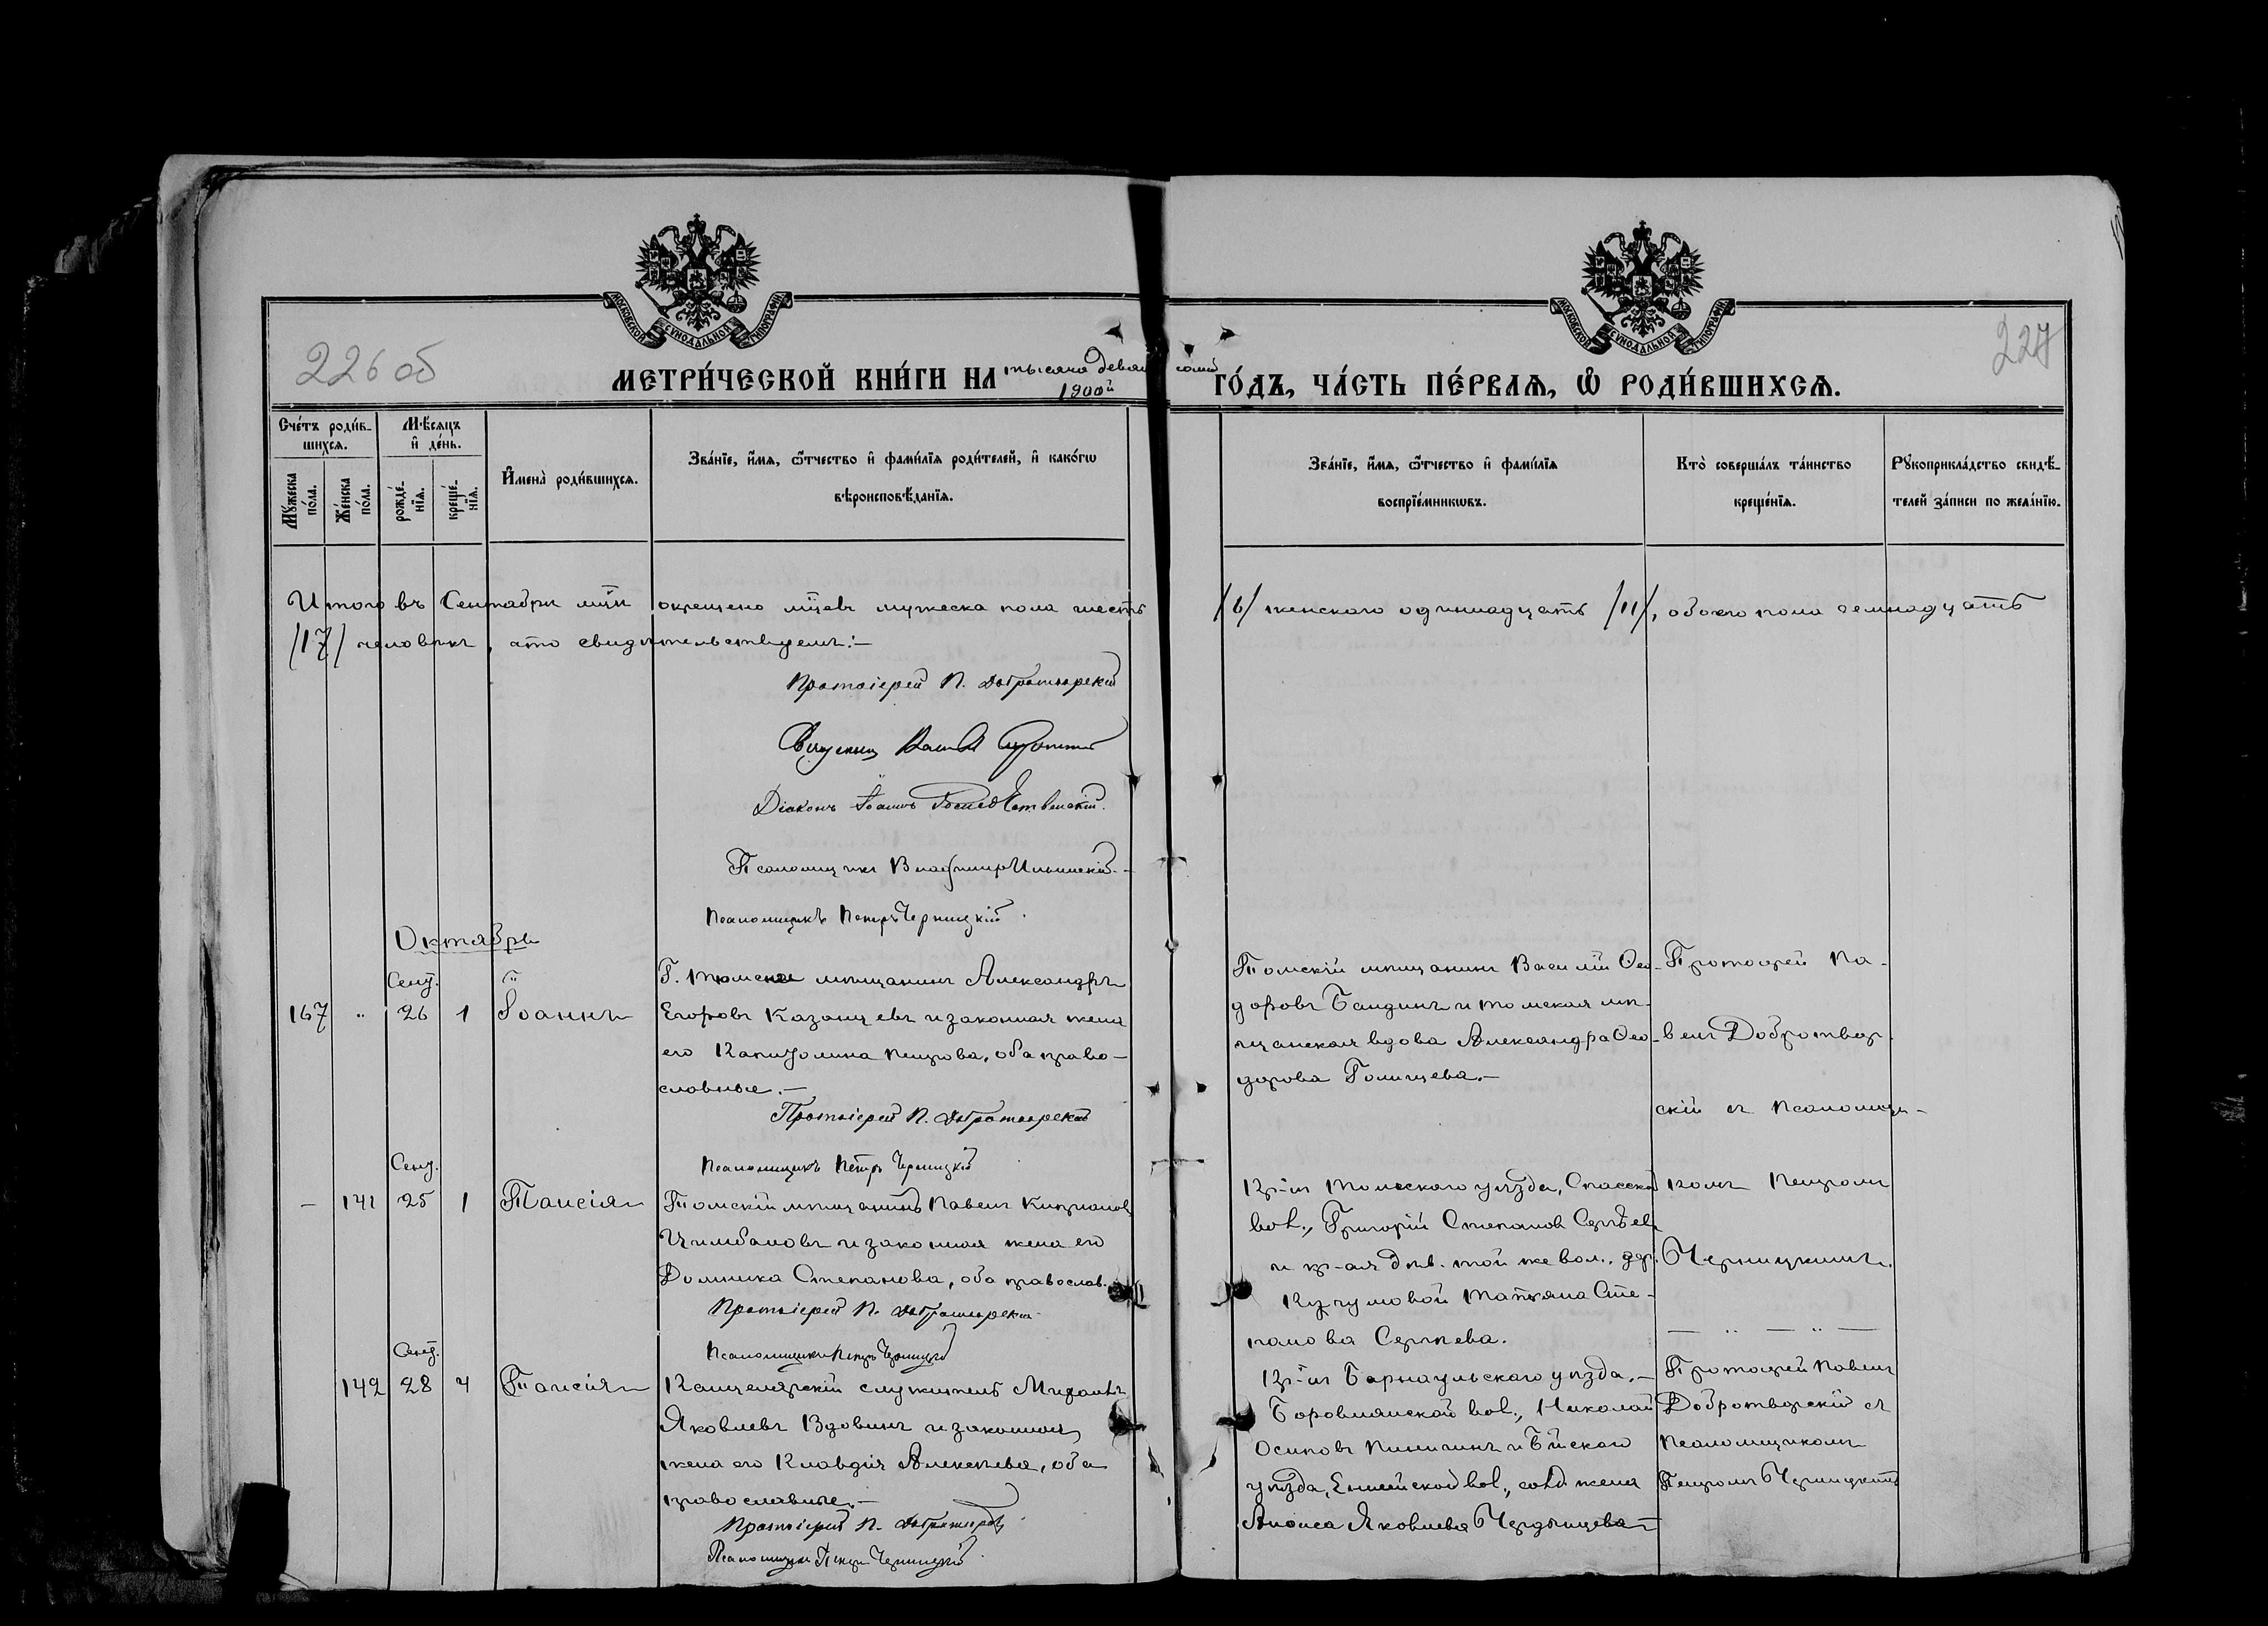 МОСКОВСКОЙ СѴНОДАЛЬНОЙ ТИПОГРАФІИ
МОСКОВСКОЙ СѴНОДАЛЬНОЙ ТИПОГРАФІИ
226 об
227
МЕТРИ́ЧЕСКОЙ КНИ́ГИ НА тысяча девятьсотый ГО́ДЪ, ЧА́СТЬ ПЕ́РВАѦ, Ѡ РОДИ́ВШИХСѦ.
1900й
Сче́тъ роди́в-
шихсѧ.
Мѣ́сѧцъ
и҆ де́нь.
Му́жеска по́ла.
Же́нска по́ла.
рожде́-нїѧ.
креще́-нїѧ.
И҆мена̀ роди́вшихсѧ.
Зва́нїе, и҆́мѧ, ѻ҆́тчество и҆ фами́лїѧ роди́телей, и҆ како́гѡ
вѣроисповѣ́данїѧ.
Зва́нїе, и҆́мѧ, ѻ҆́тчество и҆ фами́лїѧ
воспрїе́мникѡвъ.
Кто̀ соверша́лъ та́инство
креще́нїѧ.
Рꙋкоприкла́дство свидѣ́-
телей за́писи по жела́нїю.
Итого въ Сентябрѣ мѣсяцѣ окрещено мцевъ мужеска пола шесть /6/ женскаго одиннадцать /11/, обоего пола семнадцать
/17/ человѣкъ, что свидѣтельствуемъ:—
Протоіерей П. Добротворскій
Священникъ
Діаконъ Іоаннъ
Псаломщикъ Владиміръ Ильинскій.—
Псаломщикъ Петръ Черницкій.
Октябрь
Сент.
167 " 26 1 Іоаннъ
Г. Томска мѣщанинъ Александръ
Егоровъ Казанцевъ и законная жена
его Капитолина Петрова, оба право-
славные.—
Протоіерей П. Добротворскій
Псаломщикъ Петръ Черницкій
Томскій мѣщанинъ Василій Ѳео-
доровъ Бандинъ и томская мѣ-
щанская вдова Александра Ѳео-
дорова Голицева.—
Протоіерей Па-
велъ Добротвор-
скій съ псаломщи-
комъ Петромъ
Черницкимъ.
Сент.
— 141 25 1 Таисія
Томскій мѣщанинъ Павелъ Кипріановъ
Цимбаловъ и законная жена его
Домника Степанова, оба православ.
Протоіерей П. Добротворскій
Псаломщикъ Петръ Черницкій
Кр-нъ Томскаго уѣзда, Спасской
вол., Григорій Степановъ Сергѣевъ
и кр-ая дѣв. той же вол., дер.
Кучумовой Татьяна Сте-
панова Сергѣева.
— " — " —
Сент.
142 28 4 Таисія
Канцелярскій служитель Михаилъ
Яковлевъ Вдовинъ и законная
жена его Клавдія Алексѣева, оба
православные.—
Протоіерей П. Добротворскій
Псаломщикъ Петръ Черницкій
Кр-нъ Барнаульскаго уѣзда,—
Боровлянской вол., Николай
Осиповъ и Бійскаго
уѣзда, Енисейской вол., солд. жена
Анфиса Яковлева Чердынцева—
Протоіерей Павелъ
Добротворскій съ
псаломщикомъ
Петромъ Черницкимъ